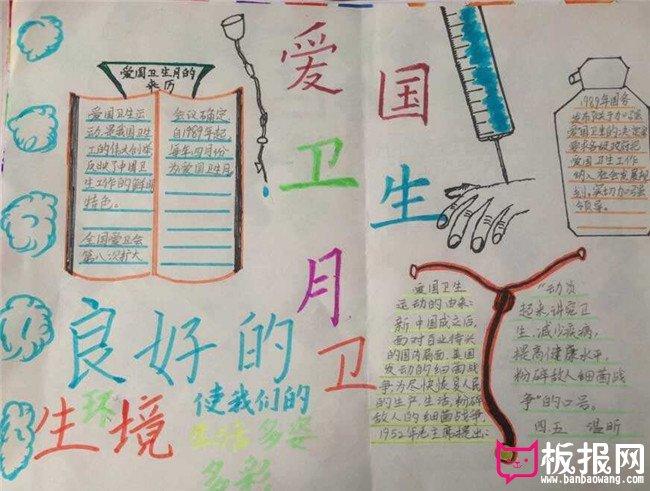 爱国卫生月
爱国卫生月的
来历
爱国卫生运
动,是我国卫生
工的伟大创举
反映了中国卫
生工作的鲜明
特色。
全国爱卫会
第八次扩大
会议确定
自1989年起
每年四月份
为爱国卫生月
1989年国务
发布《关于加强
爱国卫生的决定》
要求各级政府把
爱国卫生工作
纳入社会发展规
划,实切加强
领导。
良好的卫
生环境
使我们的
生活多姿
多彩
爱国卫生
运动的由来:
新中国成立后,
面对百业待兴
的国内局面,美国
发动的细菌战
争为尽快恢复人民
的生产生活,粉碎
敌人的细菌战争,
1952年毛主席提出:
“动员
起来,讲究卫
生,减少疾病,
提高健康水平,
粉碎敌人细菌战
争”的口号。
四五 温昕
板报网
www.banbaowang.com